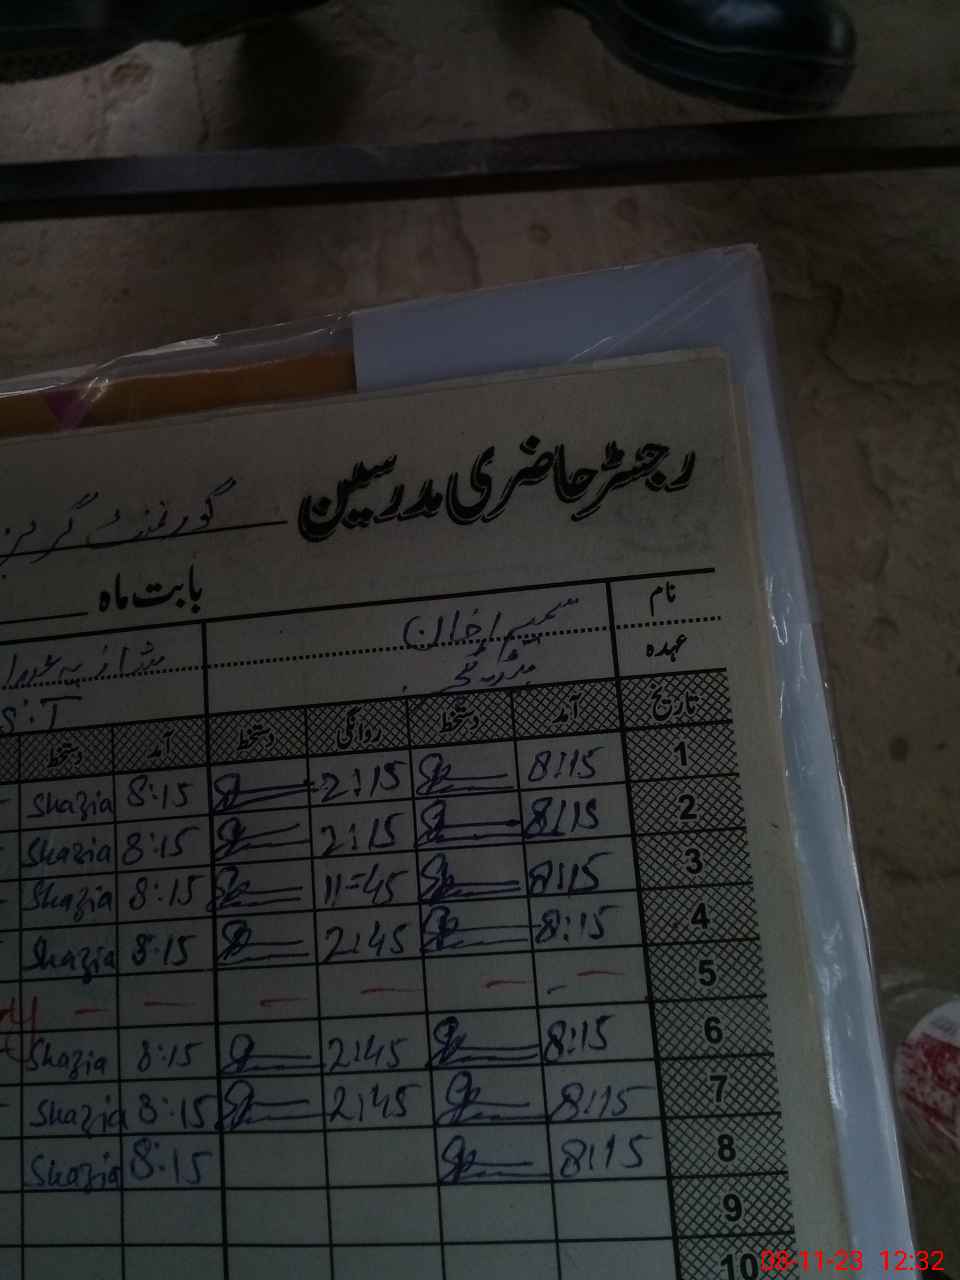 رجسٹر حاضری مدرسین گورنمنٹ گرلز
بابت ماہ
نام سمیرا خان
عہدہ
S.T
تاریخ آمد دستخط روانگی دستخط آمد دستخط
1 8:15 2:15 8:15 Shazia
2 8:15 2:15 8:15 Shazia
3 8:15 11=45 8:15 Shazia
4 8:15 2:45 8:15 Shazia
5 — — — — — —
6 8:15 2:45 8:15 Shazia
7 8:15 2:45 8:15 Shazia
8 8:15 8:15 Shazia
9
10
08-11-23 12:32